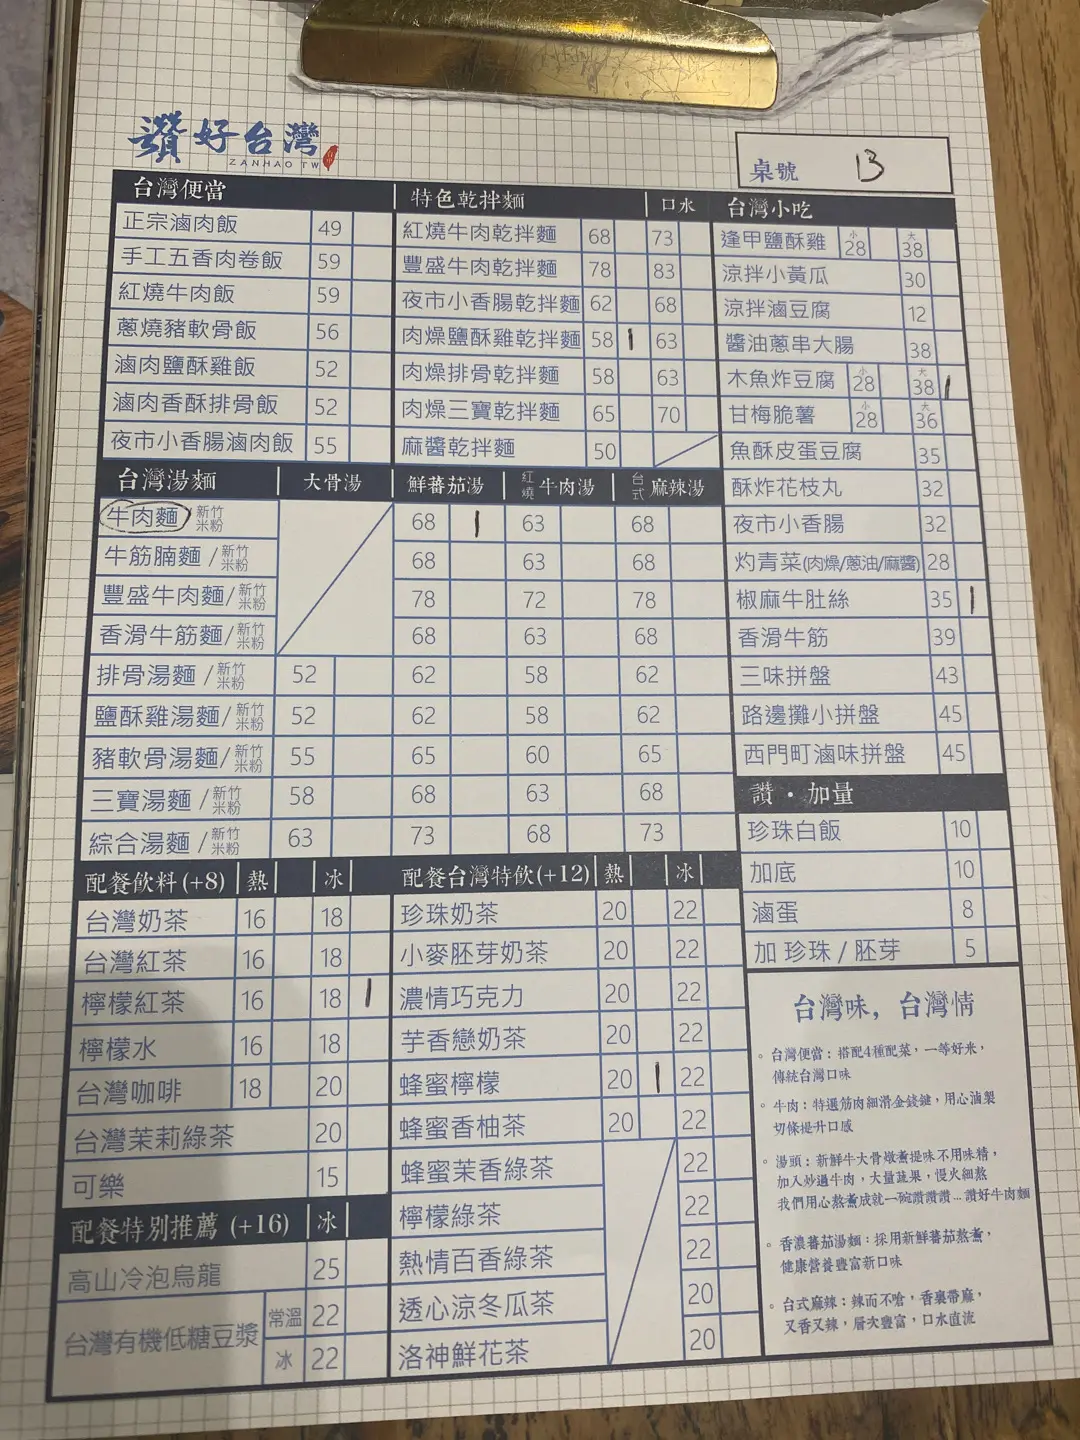 讚好台灣
ZANHAO TW
桌號 13
台灣便當
正宗滷肉飯 49
手工五香肉卷飯 59
紅燒牛肉飯 59
蔥燒豬軟骨飯 56
滷肉鹽酥雞飯 52
滷肉香酥排骨飯 52
夜市小香腸滷肉飯 55
特色乾拌麵 口水
紅燒牛肉乾拌麵 68 73
豐盛牛肉乾拌麵 78 83
夜市小香腸乾拌麵 62 68
肉燥鹽酥雞乾拌麵 58 | 63
肉燥排骨乾拌麵 58 63
肉燥三寶乾拌麵 65 70
麻醬乾拌麵 50
台灣小吃
逢甲鹽酥雞 小28 大38
涼拌小黃瓜 30
涼拌滷豆腐 12
醬油蔥串大腸 38
木魚炸豆腐 小28 大38 |
甘梅脆薯 小28 大36
魚酥皮蛋豆腐 35
酥炸花枝丸 32
夜市小香腸 32
灼青菜(肉燥/蔥油/麻醬) 28
椒麻牛肚絲 35 |
香滑牛筋 39
三味拼盤 43
路邊攤小拼盤 45
西門町滷味拼盤 45
台灣湯麵 大骨湯 鮮蕃茄湯 紅燒牛肉湯 台式麻辣湯
牛肉麵/新竹米粉 68 | 63 68
牛筋腩麵/新竹米粉 68 63 68
豐盛牛肉麵/新竹米粉 78 72 78
香滑牛筋麵/新竹米粉 68 63 68
排骨湯麵/新竹米粉 52 62 58 62
鹽酥雞湯麵/新竹米粉 52 62 58 62
豬軟骨湯麵/新竹米粉 55 65 60 65
三寶湯麵/新竹米粉 58 68 63 68
綜合湯麵/新竹米粉 63 73 68 73
讚・加量
珍珠白飯 10
加底 10
滷蛋 8
加 珍珠 / 胚芽 5
配餐飲料(+8) 熱 冰
台灣奶茶 16 18
台灣紅茶 16 18
檸檬紅茶 16 18 |
檸檬水 16 18
台灣咖啡 18 20
台灣茉莉綠茶 20
可樂 15
配餐特別推薦 (+16) 冰
高山冷泡烏龍 25
台灣有機低糖豆漿 常溫 22
冰 22
配餐台灣特飲(+12) 熱 冰
珍珠奶茶 20 22
小麥胚芽奶茶 20 22
濃情巧克力 20 22
芋香戀奶茶 20 22
蜂蜜檸檬 20 | 22
蜂蜜香柚茶 20 22
蜂蜜茉香綠茶 22
檸檬綠茶 22
熱情百香綠茶 22
透心涼冬瓜茶 20
洛神鮮花茶 20
台灣味，台灣情
。台灣便當：搭配4種配菜，一等好米，
傳統台灣口味
。牛肉：特選筋肉細滑金錢腱，用心滷製
切條提升口感
。湯頭：新鮮牛大骨燉煮提味不用味精，
加入炒過牛肉，大量蔬果，慢火細熬
我們用心熬煮成就一碗讚讚讚...讚好牛肉麵
。香濃蕃茄湯麵：採用新鮮蕃茄熬煮，
健康營養豐富新口味
。台式麻辣：辣而不嗆，香裏帶麻，
又香又辣，層次豐富，口水直流